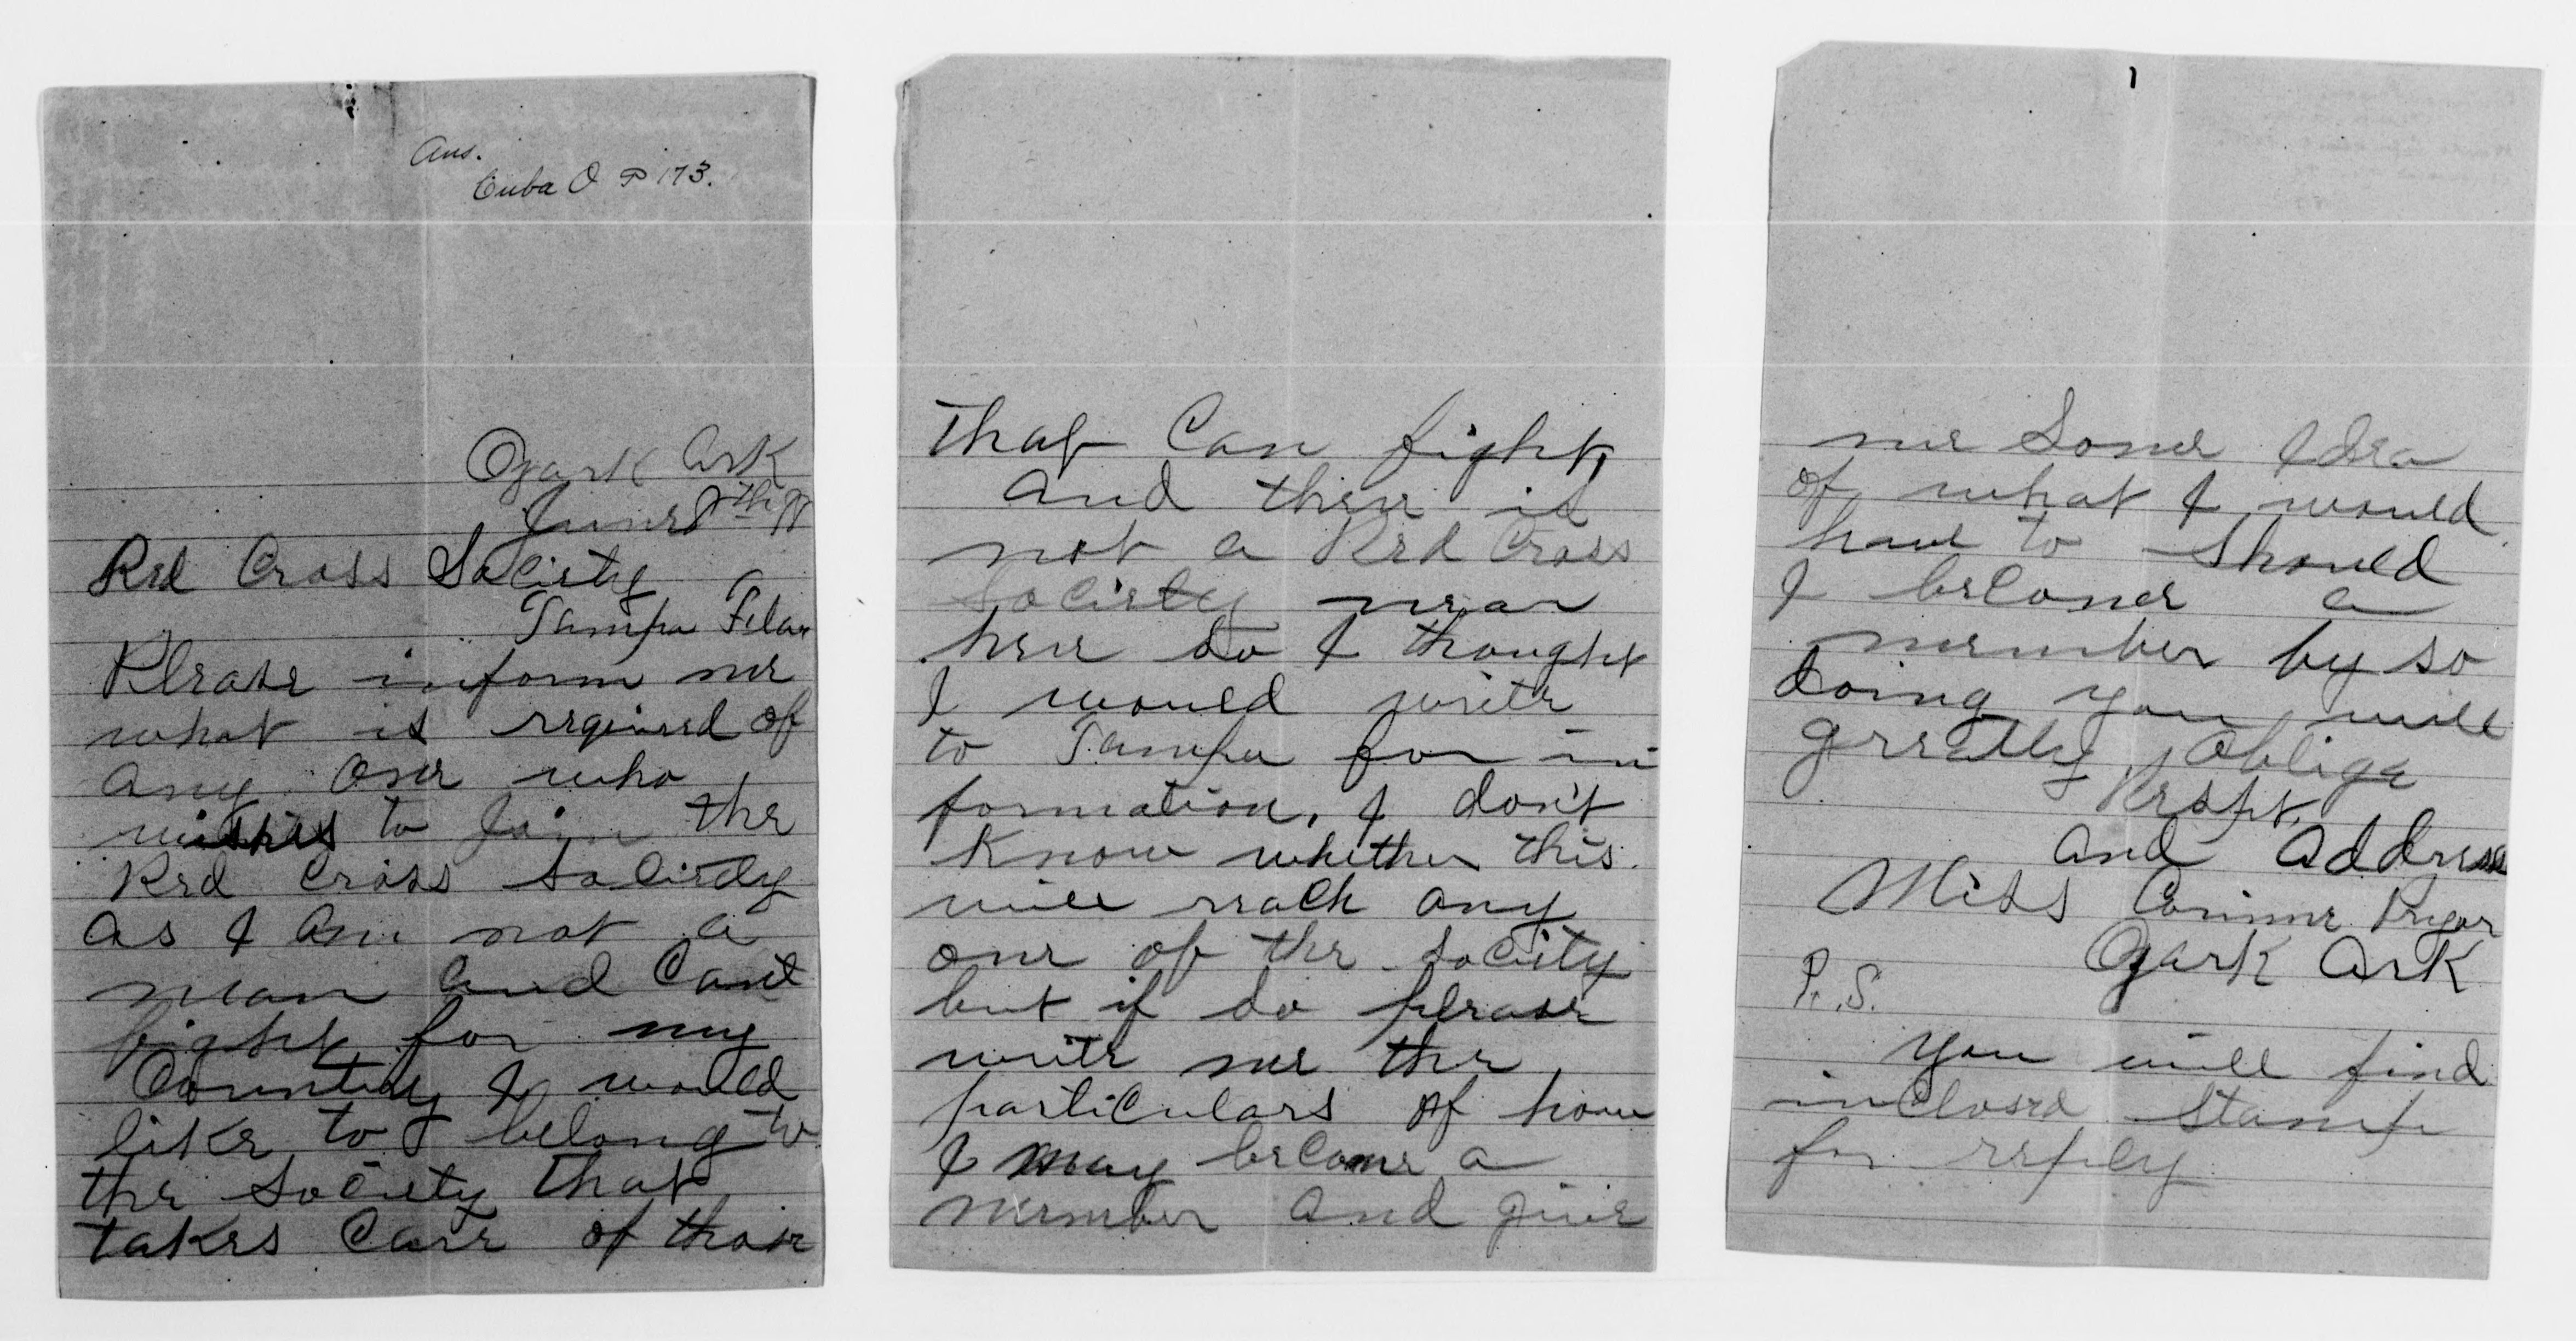 Ans.
Cuba O P 173.
Ozark Ark
June 8th
Red Cross Society
Tampa Flar
Please inform me
what is required of
any one who
wishes to Join the
Red Cross Society
as I am not a
man and Can't
fight for my
Country I would
like to belong to
the Society that
takes Care of those
that Can fight,
and there is
not a Red Cross
Society near
here so I thought
I would write
to Tampa for in
formation. I don't
know whether this
will reach any
one of the society
but if so please
write me the
particulars of how
I may become a
member and give
me Some Idea
of what I would
have to Should
I become a
member by so
doing you will
greatly oblige
Respt,
and address
Miss Corinne Pryor
Ozark Ark
P.S.
You will find
inclosed Stamp
for reply